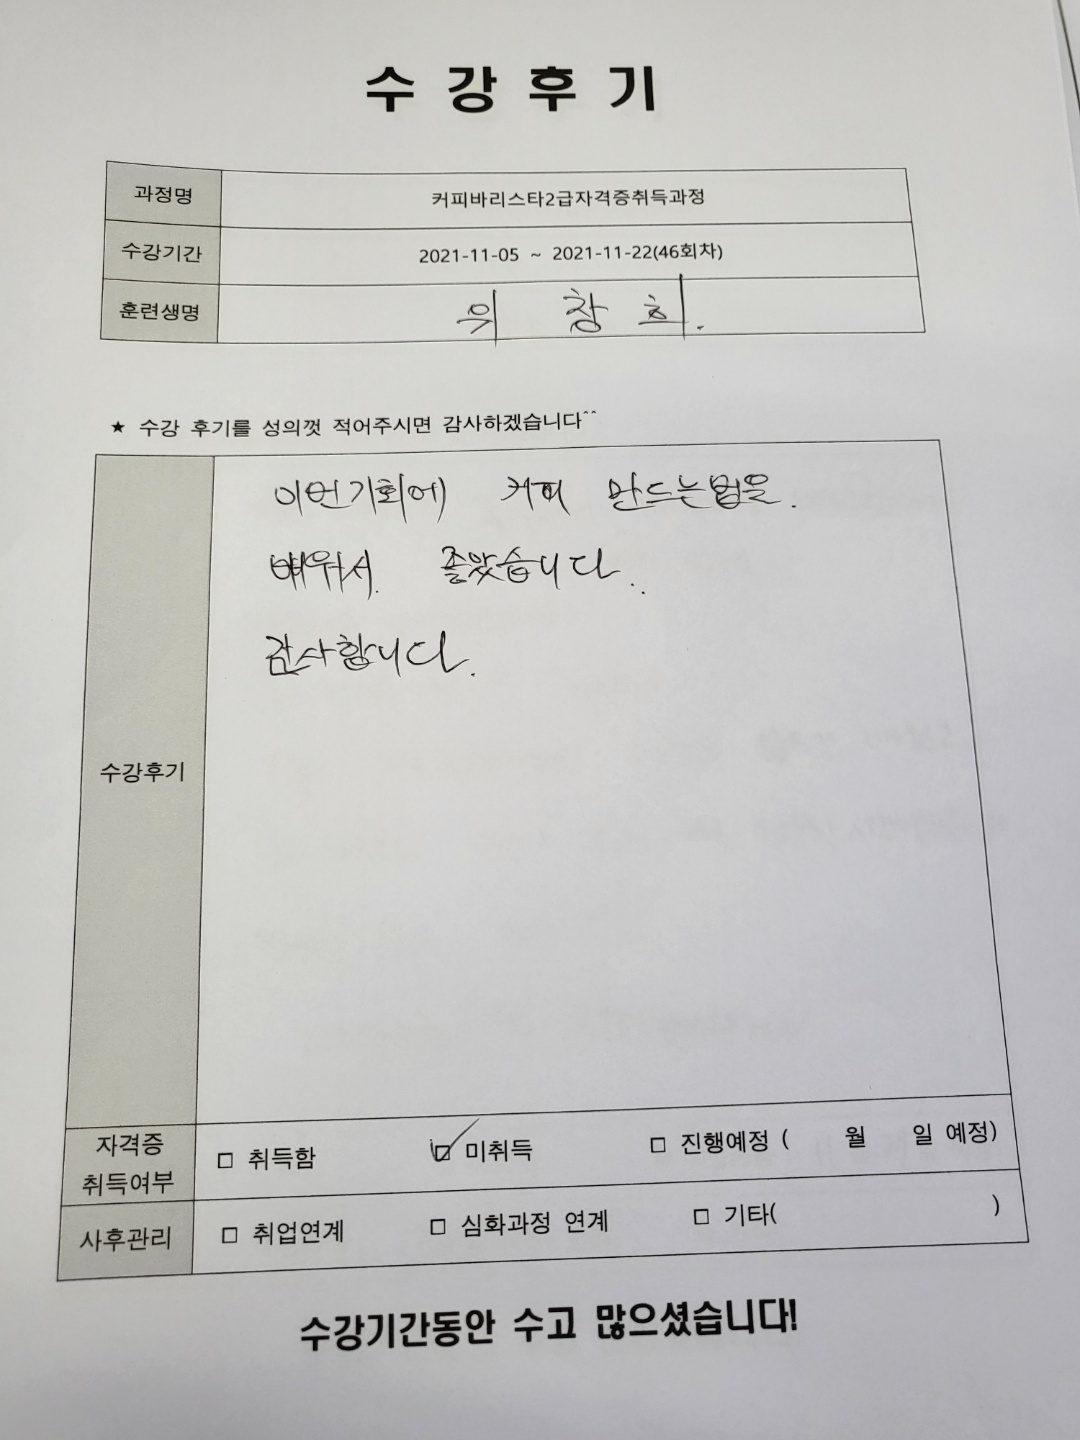 수 강 후 기
과정명 커피바리스타2급자격증취득과정
수강기간 2021-11-05 ~ 2021-11-22(46회차)
훈련생명 위 창 희.
★ 수강 후기를 성의껏 적어주시면 감사하겠습니다^^
이번기회에 커피 만드는법을.
배워서. 좋았습니다..
감사합니다.
수강후기
자격증
취득여부
□ 취득함 ☑ 미취득 □ 진행예정 ( 월 일 예정)
사후관리 □ 취업연계 □ 심화과정 연계 □ 기타( )
수강기간동안 수고 많으셨습니다!